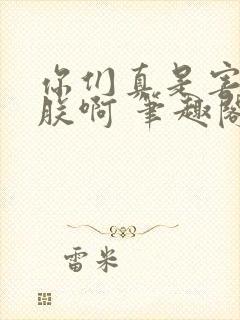 你们真是害
朕啊 笔趣阁
雷米